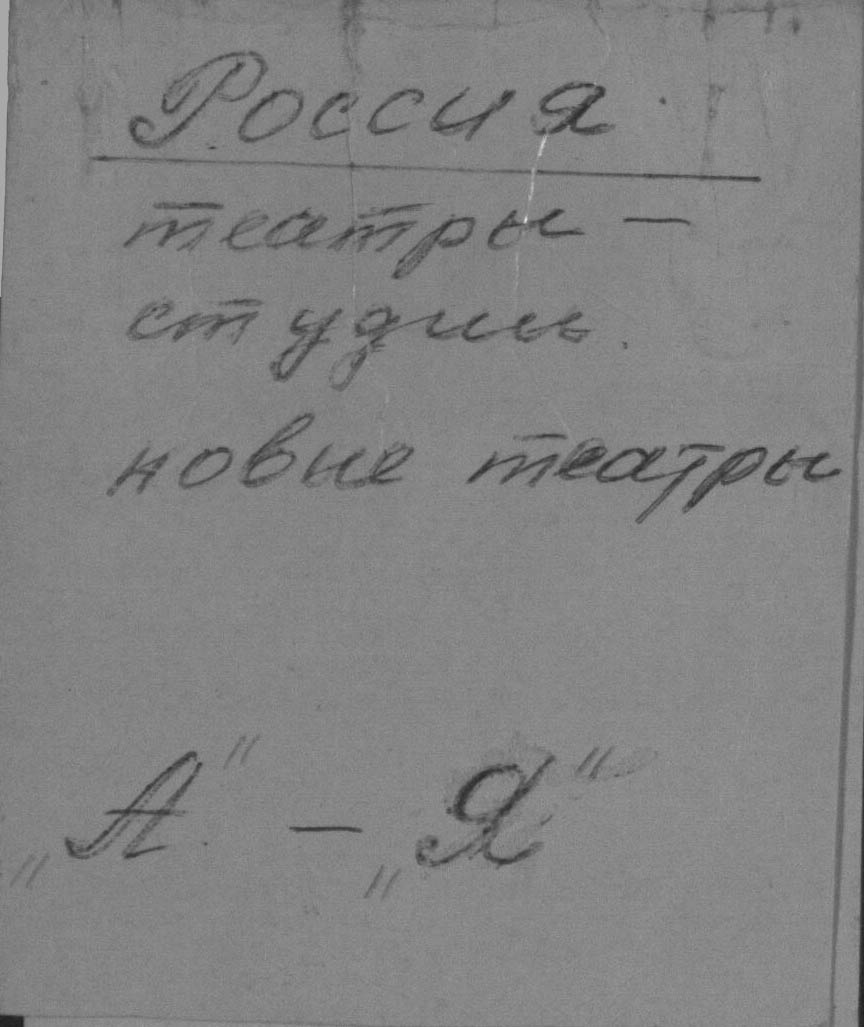 Россия
театры –
студии.
новые театры
„А" – „Я"